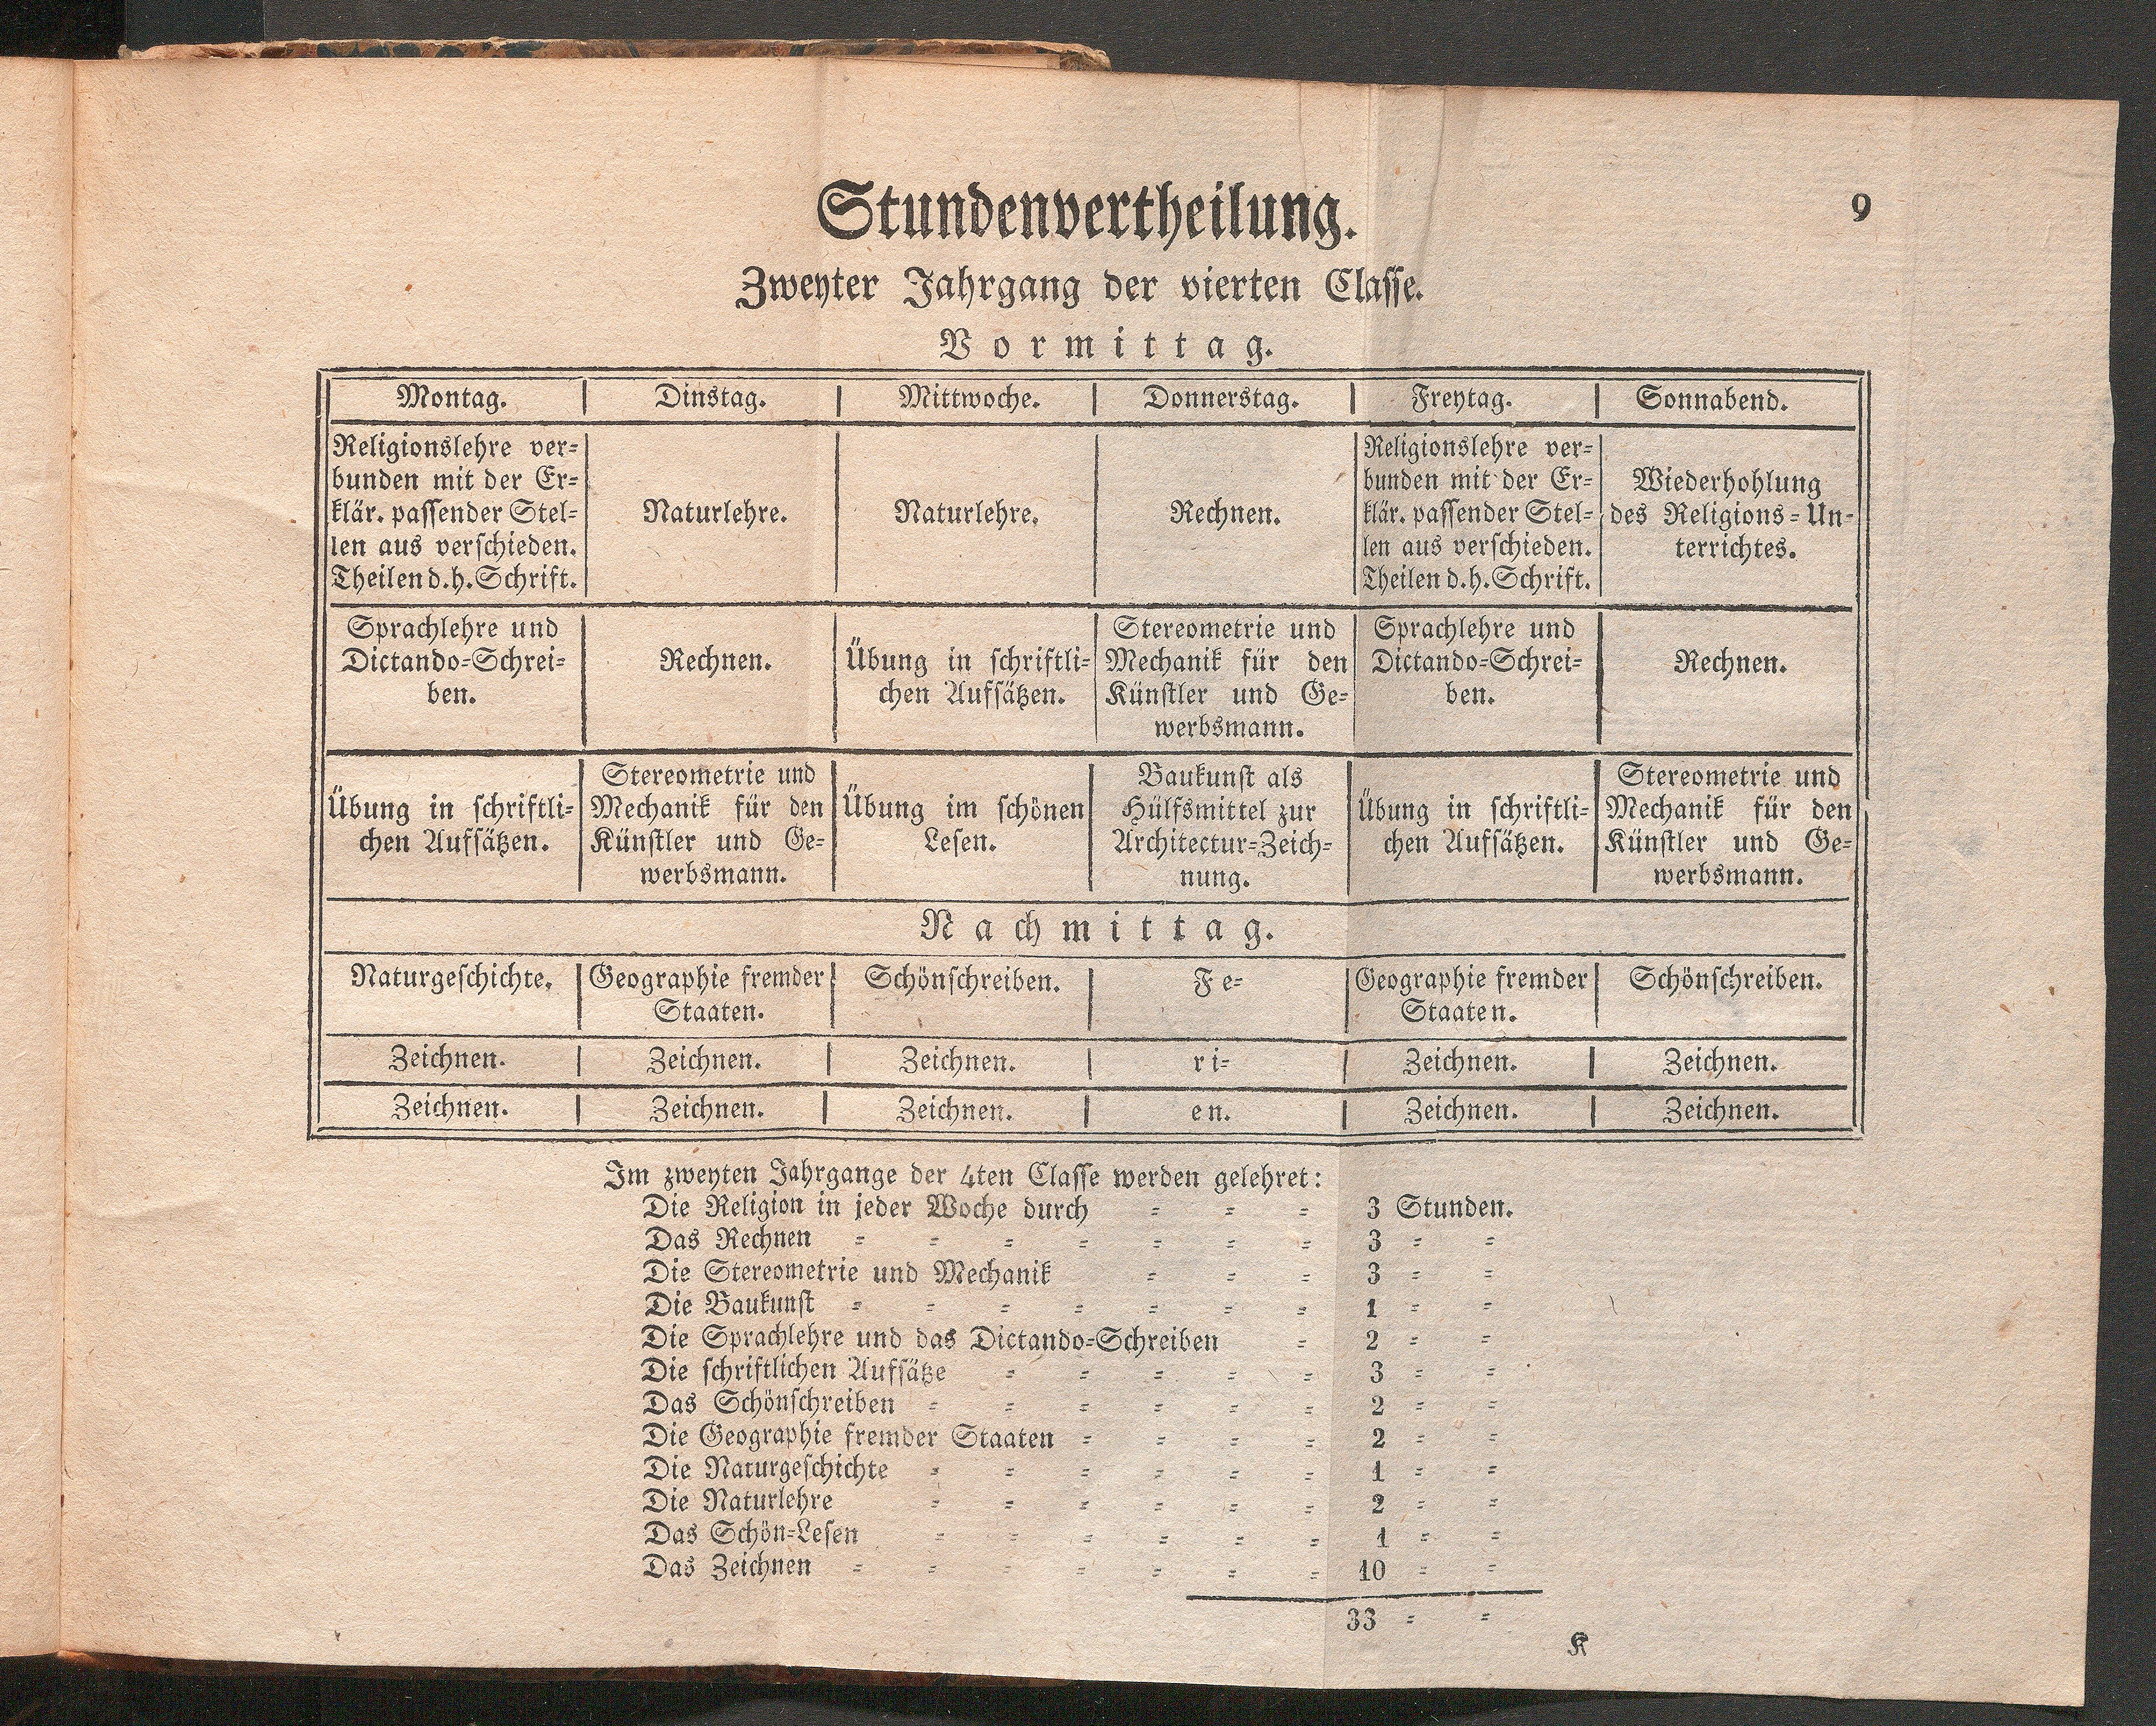 9
Stundenvertheilung.
Zweyter Jahrgang der vierten Classe.
Vormittag.
Montag. Dinstag. Mittwoche. Donnerstag. Freytag. Sonnabend.
Religionslehre ver=
bunden mit der Er=
klär. passender Stel=
len aus verschieden.
Theilen d. h. Schrift.
Naturlehre.
Naturlehre.
Rechnen.
Religionslehre ver=
bunden mit der Er=
klär. passender Stel=
len aus verschieden.
Theilen d. h. Schrift.
Wiederhohlung
des Religions=Un=
terrichtes.
Sprachlehre und
Dictando=Schrei=
ben.
Rechnen.
Übung in schriftli=
chen Aufsätzen.
Stereometrie und
Mechanik für den
Künstler und Ge=
werbsmann.
Sprachlehre und
Dictando=Schrei=
ben.
Rechnen.
Übung in schriftli=
chen Aufsätzen.
Stereometrie und
Mechanik für den
Künstler und Ge=
werbsmann.
Übung im schönen
Lesen.
Baukunst als
Hülfsmittel zur
Architectur=Zeich=
nung.
Übung in schriftli=
chen Aufsätzen.
Stereometrie und
Mechanik für den
Künstler und Ge=
werbsmann.
Nachmittag.
Naturgeschichte.
Geographie fremder
Staaten.
Schönschreiben.
Fe=
Geographie fremder
Staaten.
Schönschreiben.
Zeichnen. Zeichnen. Zeichnen. ri= Zeichnen. Zeichnen.
Zeichnen. Zeichnen. Zeichnen. en. Zeichnen. Zeichnen.
Im zweyten Jahrgange der 4ten Classe werden gelehret:
Die Religion in jeder Woche durch = = = 3 Stunden.
Das Rechnen = = = = = = = 3 = =
Die Stereometrie und Mechanik = = = 3 = =
Die Baukunst = = = = = = = 1 = =
Die Sprachlehre und das Dictando=Schreiben = 2 = =
Die schriftlichen Aufsätze = = = = = 3 = =
Das Schönschreiben = = = = = = 2 = =
Die Geographie fremder Staaten = = = = 2 = =
Die Naturgeschichte = = = = = = 1 = =
Die Naturlehre = = = = = = 2 = =
Das Schön=Lesen = = = = = = 1 = =
Das Zeichnen = = = = = = = 10 = =
33 = =
K